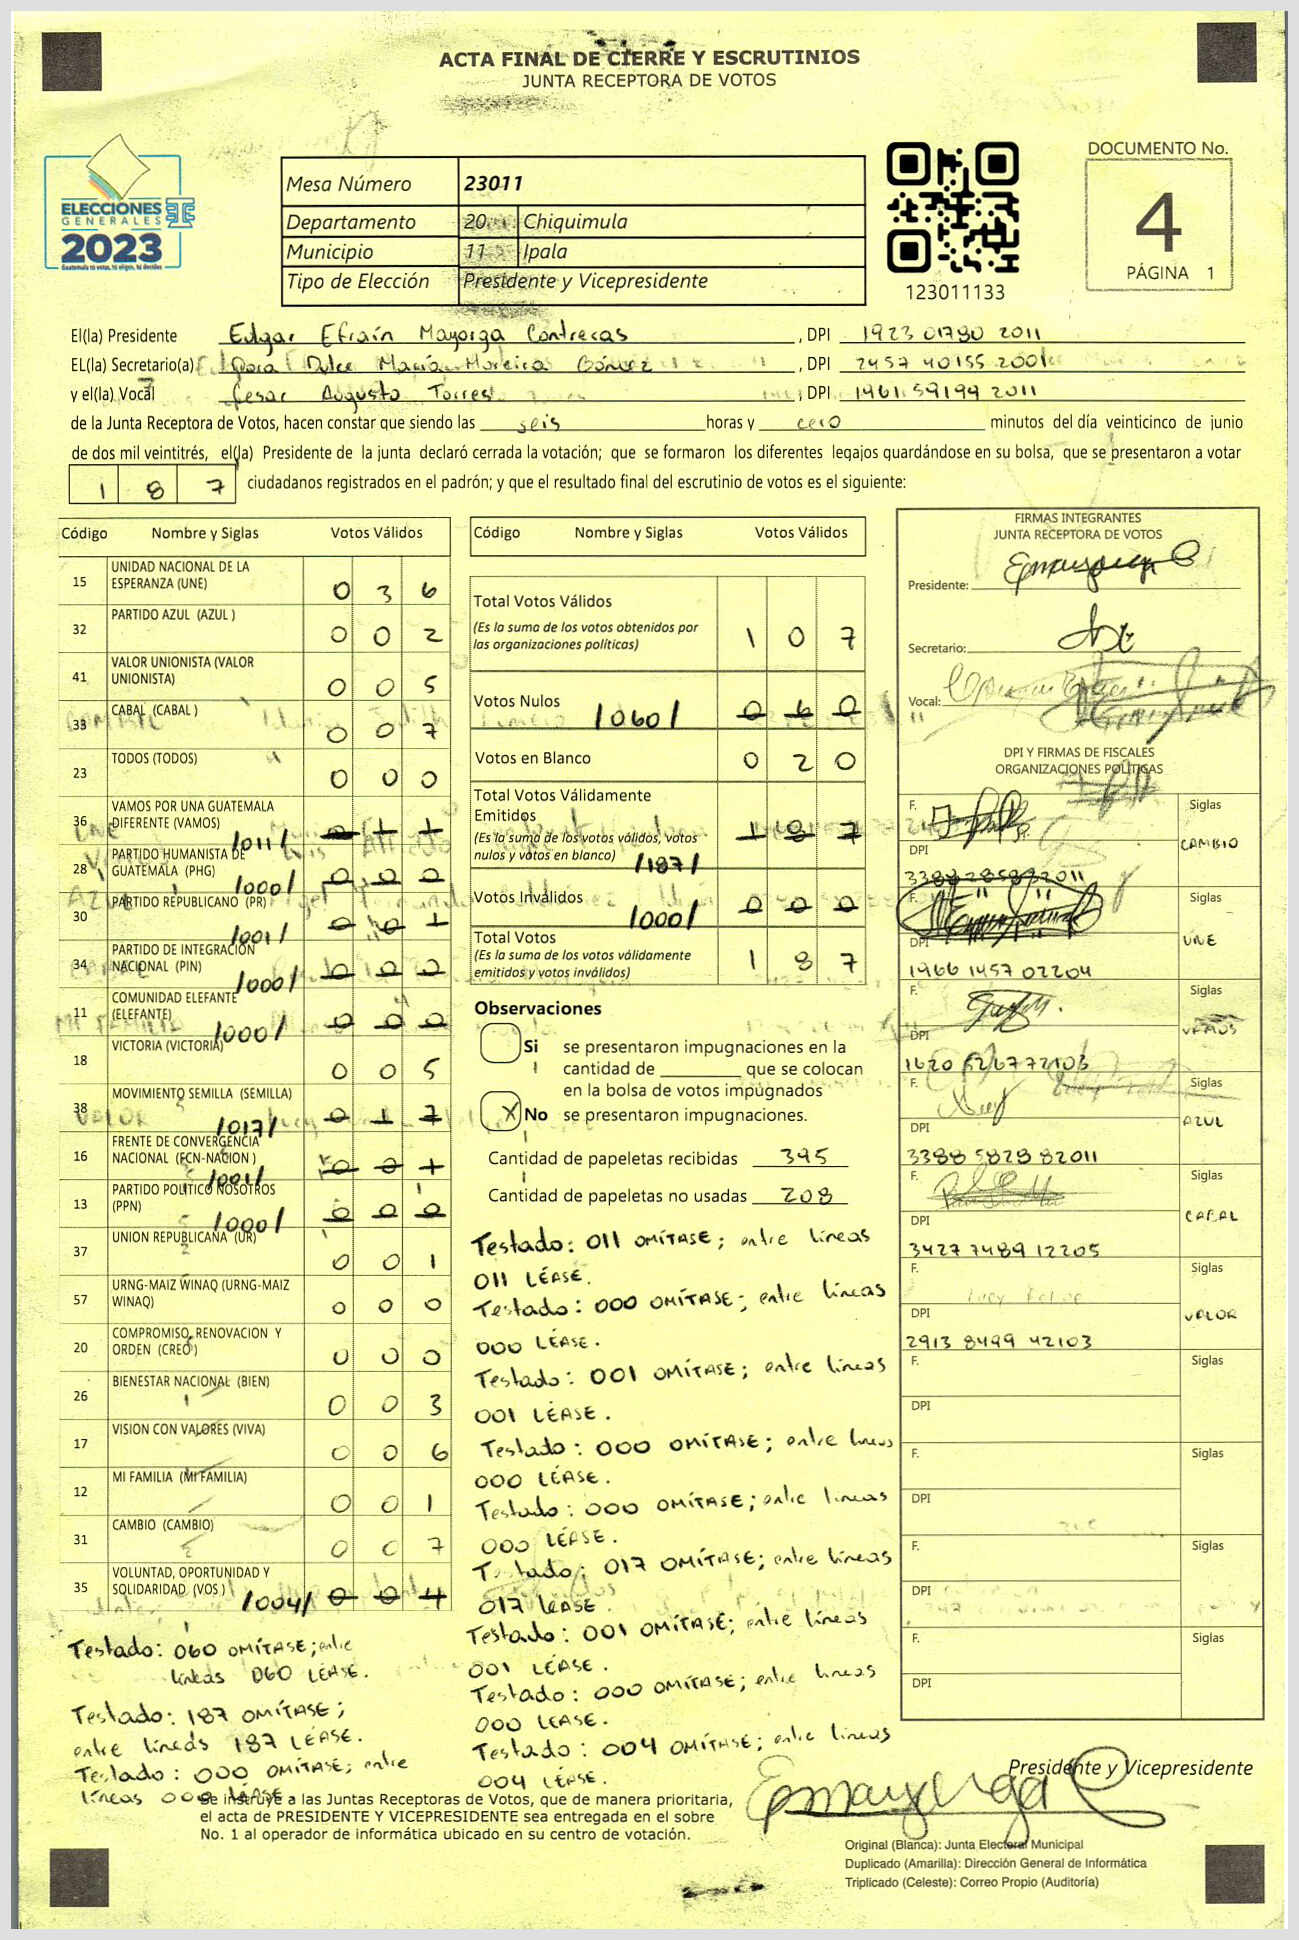 ACTA FINAL DE CIERRE Y ESCRUTINIOS
JUNTA RECEPTORA DE VOTOS
ELECCIONES
GENERALES
2023
Guatemala tú votas, tú eliges, tú decides
Mesa Número 23011
Departamento 20 Chiquimula
Municipio 11 Ipala
Tipo de Elección Presidente y Vicepresidente
123011133
DOCUMENTO No.
4
PÁGINA 1
El(la) Presidente Edgar Efraín Mayorga Contreras, DPI 1923 01780 2011
EL(la) Secretario(a) Dora Dulce María Moreira Gómez, DPI 2457 40155 2001
y el(la) Vocal Cesar Augusto Torres, DPI 1961 59199 2011
de la Junta Receptora de Votos, hacen constar que siendo las seis horas y cero minutos del día veinticinco de junio
de dos mil veintitrés, el(la) Presidente de la junta declaró cerrada la votación; que se formaron los diferentes legajos guardándose en su bolsa, que se presentaron a votar
1 8 7 ciudadanos registrados en el padrón; y que el resultado final del escrutinio de votos es el siguiente:
Código Nombre y Siglas Votos Válidos
15 UNIDAD NACIONAL DE LA ESPERANZA (UNE) 0 3 6
32 PARTIDO AZUL (AZUL ) 0 0 2
41 VALOR UNIONISTA (VALOR UNIONISTA) 0 0 5
33 CABAL (CABAL ) 0 0 7
23 TODOS (TODOS) 0 0 0
36 VAMOS POR UNA GUATEMALA DIFERENTE (VAMOS) /011/ 0 1 1
28 PARTIDO HUMANISTA DE GUATEMALA (PHG) /000/ 0 0 0
30 PARTIDO REPUBLICANO (PR) /001/ 0 0 1
34 PARTIDO DE INTEGRACIÓN NACIONAL (PIN) /000/ 0 0 0
11 COMUNIDAD ELEFANTE (ELEFANTE) /000/ 0 0 0
18 VICTORIA (VICTORIA) 0 0 5
38 MOVIMIENTO SEMILLA (SEMILLA) /017/ 0 1 7
16 FRENTE DE CONVERGENCIA NACIONAL (FCN-NACION ) /001/ 0 0 1
13 PARTIDO POLITICO NOSOTROS (PPN) /000/ 0 0 0
37 UNION REPUBLICANA (UR) 0 0 1
57 URNG-MAIZ WINAQ (URNG-MAIZ WINAQ) 0 0 0
20 COMPROMISO, RENOVACION Y ORDEN (CREO) 0 0 0
26 BIENESTAR NACIONAL (BIEN) 0 0 3
17 VISION CON VALORES (VIVA) 0 0 6
12 MI FAMILIA (MI FAMILIA) 0 0 1
31 CAMBIO (CAMBIO) 0 0 7
35 VOLUNTAD, OPORTUNIDAD Y SOLIDARIDAD (VOS ) /004/ 0 0 4
Testado: 060 OMÍTASE; entre
líneas 060 LÉASE.
Testado: 187 OMÍTASE;
entre líneas 187 LÉASE.
Testado: 000 OMÍTASE; entre
líneas 000 LÉASE
Código Nombre y Siglas Votos Válidos
Total Votos Válidos
(Es la suma de los votos obtenidos por
las organizaciones políticas) 1 0 7
Votos Nulos /060/ 0 6 0
Votos en Blanco 0 2 0
Total Votos Válidamente
Emitidos
(Es la suma de los votos válidos, votos
nulos y votos en blanco) /187/ 1 8 7
Votos Inválidos /000/ 0 0 0
Total Votos
(Es la suma de los votos válidamente
emitidos y votos inválidos) 1 8 7
Observaciones
Si se presentaron impugnaciones en la
cantidad de que se colocan
en la bolsa de votos impugnados
X No se presentaron impugnaciones.
Cantidad de papeletas recibidas 395
Cantidad de papeletas no usadas 208
Testado: 011 OMÍTASE; entre líneas
011 LÉASE.
Testado: 000 OMÍTASE; entre líneas
000 LÉASE.
Testado: 001 OMÍTASE; entre líneas
001 LÉASE.
Testado: 000 OMÍTASE; entre líneas
000 LÉASE.
Testado: 000 OMÍTASE; entre líneas
000 LÉASE.
Testado: 017 OMÍTASE; entre líneas
017 LÉASE
Testado: 001 OMÍTASE; entre líneas
001 LÉASE.
Testado: 000 OMÍTASE; entre líneas
000 LÉASE.
Testado: 004 OMÍTASE; entre líneas
004 LÉASE.
FIRMAS INTEGRANTES
JUNTA RECEPTORA DE VOTOS
Presidente:
Secretario:
Vocal:
DPI Y FIRMAS DE FISCALES
ORGANIZACIONES POLÍTICAS
F. Siglas
CAMBIO
DPI
3388 28583 2011
F. Siglas
UNE
DPI
1966 1457 02204
F. Siglas
VAMOS
DPI
1620 52677 2103
F. Siglas
AZUL
DPI
3388 5828 82011
F. Siglas
CABAL
DPI
3427 7489 12205
F. Siglas
VALOR
DPI
2913 8499 42103
F. Siglas
DPI
F. Siglas
DPI
F. Siglas
DPI
F. Siglas
DPI
Presidente y Vicepresidente
Se instruye a las Juntas Receptoras de Votos, que de manera prioritaria,
el acta de PRESIDENTE Y VICEPRESIDENTE sea entregada en el sobre
No. 1 al operador de informática ubicado en su centro de votación.
Original (Blanca): Junta Electoral Municipal
Duplicado (Amarilla): Dirección General de Informática
Triplicado (Celeste): Correo Propio (Auditoría)